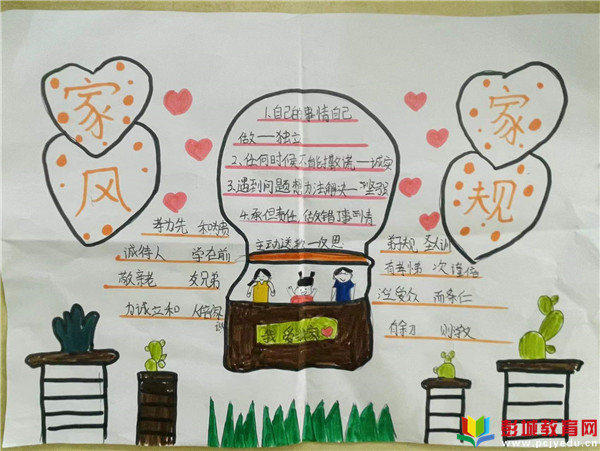 家风
家规
1.自己的事情自己
做——独立
2.任何时候不能撒谎—诚实
3.遇到问题想办法解决—坚强
4.承担责任,做错事到情
主动道歉—反思
孝为先
诚待人 学在前
敬亲老 友兄弟
为诚立和
弟子规 圣训
首孝悌 次谨信
泛爱众 而亲仁
有余力 则学文
我爱家
彭城教育网
www.pcjyedu.cn